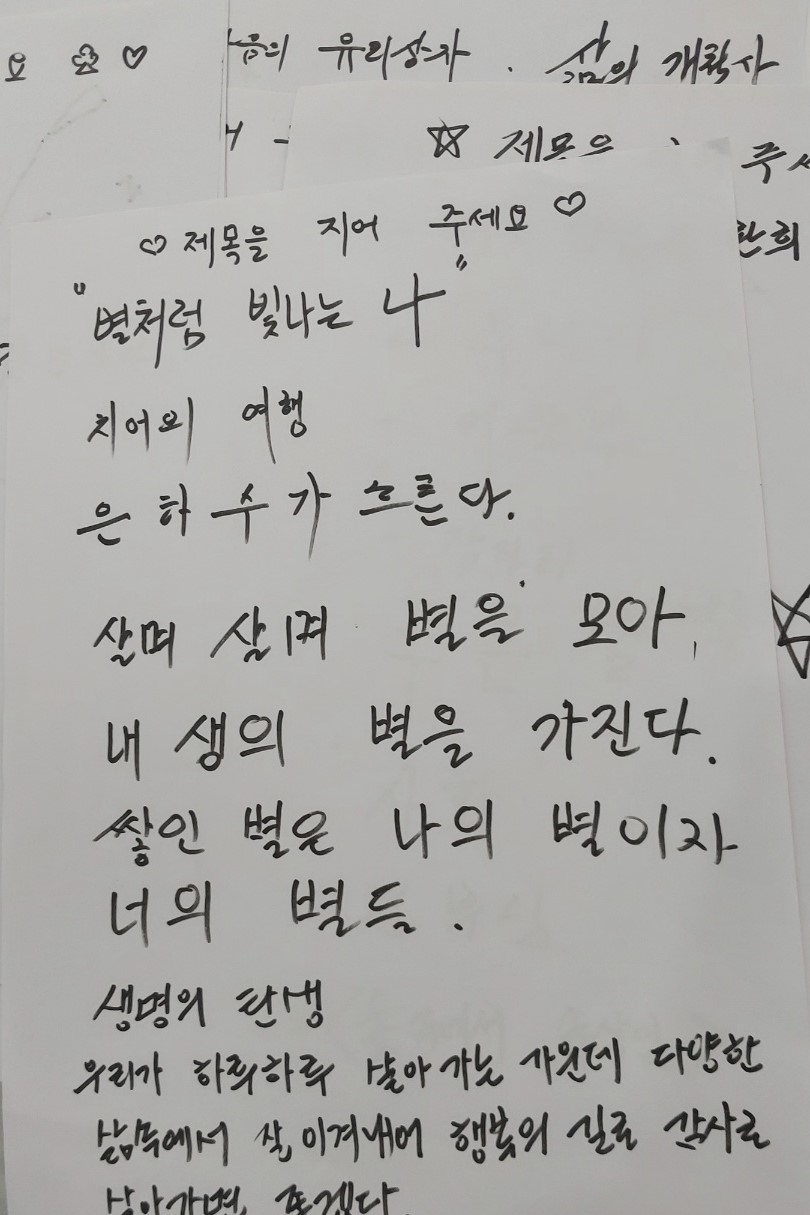 유리상자 . 삶의 개척자
☆ 제목을 주세
♡ 제목을 지어 주세요 ♡
"별처럼 빛나는 나"
치어의 여행
은하수가 흐른다.
살며 살며 별을 모아,
내 생의 별을 가진다.
쌓인 별은 나의 별이자
너의 별들.
생명의 탄생
우리가 하루하루 살아 가는 가운데 다양한
삶속에서 잘 이겨내어 행복의 길로 감사로
살아가면 좋겠다.